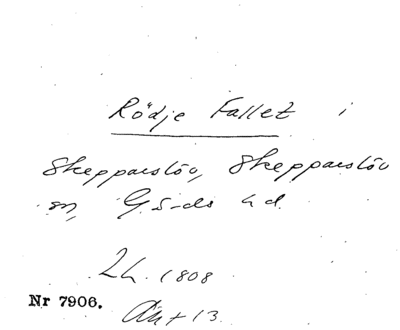 Rödje Fallet i
Skepparslöv, Skepparslöv
sn, Gärds hd.
LH. 1808
Nr 7906.
Akt 13